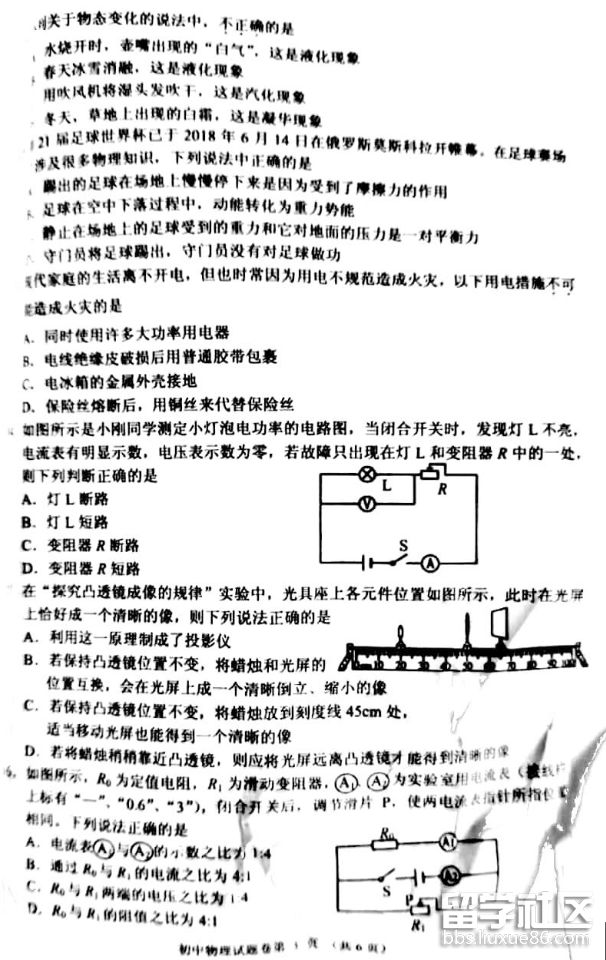 关于物态变化的说法中，不正确的是
水烧开时，壶嘴出现的“白气”，这是液化现象
春天冰雪消融，这是液化现象
用吹风机将湿头发吹干，这是汽化现象
冬天，草地上出现的白霜，这是凝华现象
21届足球世界杯已于2018年6月14日在俄罗斯莫斯科拉开帷幕。在足球赛场
涉及很多物理知识，下列说法中正确的是
踢出的足球在场地上慢慢停下来是因为受到了摩擦力的作用
足球在空中下落过程中，动能转化为重力势能
静止在场地上的足球受到的重力和它对地面的压力是一对平衡力
守门员将足球踢出，守门员没有对足球做功
代家庭的生活离不开电，但也时常因为用电不规范造成火灾，以下用电措施不可
能造成火灾的是
A．同时使用许多大功率用电器
B．电线绝缘皮破损后用普通胶带包裹
C．电冰箱的金属外壳接地
D．保险丝熔断后，用铜丝来代替保险丝
如图所示是小刚同学测定小灯泡电功率的电路图，当闭合开关时，发现灯L不亮，
电流表有明显示数，电压表示数为零，若故障只出现在灯L和变阻器R中的一处，
则下列判断正确的是
A．灯L断路
B．灯L短路
C．变阻器R断路
D．变阻器R短路
L
R
V
S
A
在“探究凸透镜成像的规律”实验中，光具座上各元件位置如图所示，此时在光屏
上恰好成一个清晰的像，则下列说法正确的是
A．利用这一原理制成了投影仪
B．若保持凸透镜位置不变，将蜡烛和光屏的
位置互换，会在光屏上成一个清晰倒立、缩小的像
C．若保持凸透镜位置不变，将蜡烛放到刻度线45cm处，
适当移动光屏也能得到一个清晰的像
D．若将蜡烛稍稍靠近凸透镜，则应将光屏远离凸透镜才能得到清晰的像
10 20 30 40 50 60 70 80 90
如图所示，R₀为定值电阻，R₁为滑动变阻器，A₁、A₂为实验室用电流表（接线柱
上标有“—”，“0.6”、“3”），闭合开关后，调节滑片P，使两电流表指针所指位置
相同。下列说法正确的是
A．电流表A₁与A₂的示数之比为1:4
B．通过R₀与R₁的电流之比为4:1
C．R₀与R₁两端的电压之比为1:4
D．R₀与R₁的阻值之比为4:1
R₀
A1
A2
S
P
R₁
初中物理试题卷第 页 （共6页）
留学社区
bbs.liuxue86.com